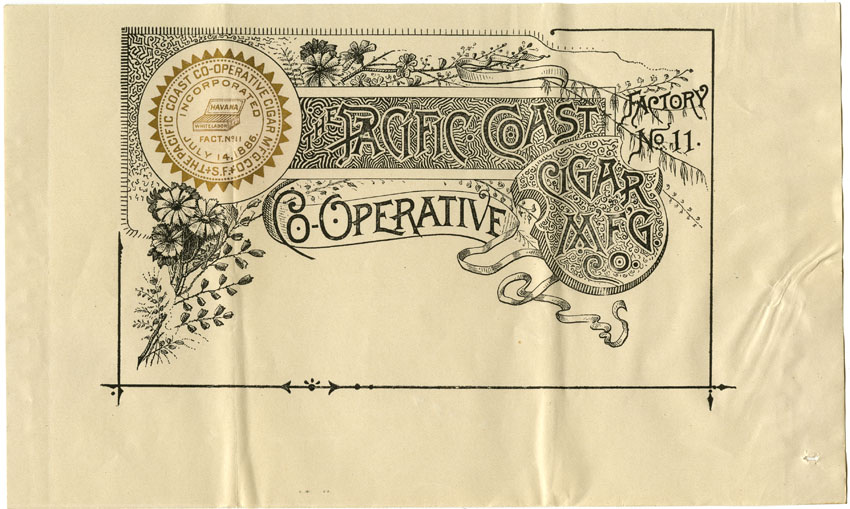 THE PACIFIC COAST CO-OPERATIVE CIGAR MFG. CO.
INCORPORATED
HAVANA
WHITE LABOR
FACT. No 11
JULY 14, 1886.
S.F.
THE PACIFIC COAST
FACTORY
No. 11.
CO-OPERATIVE
CIGAR
M'F'G.
CO.